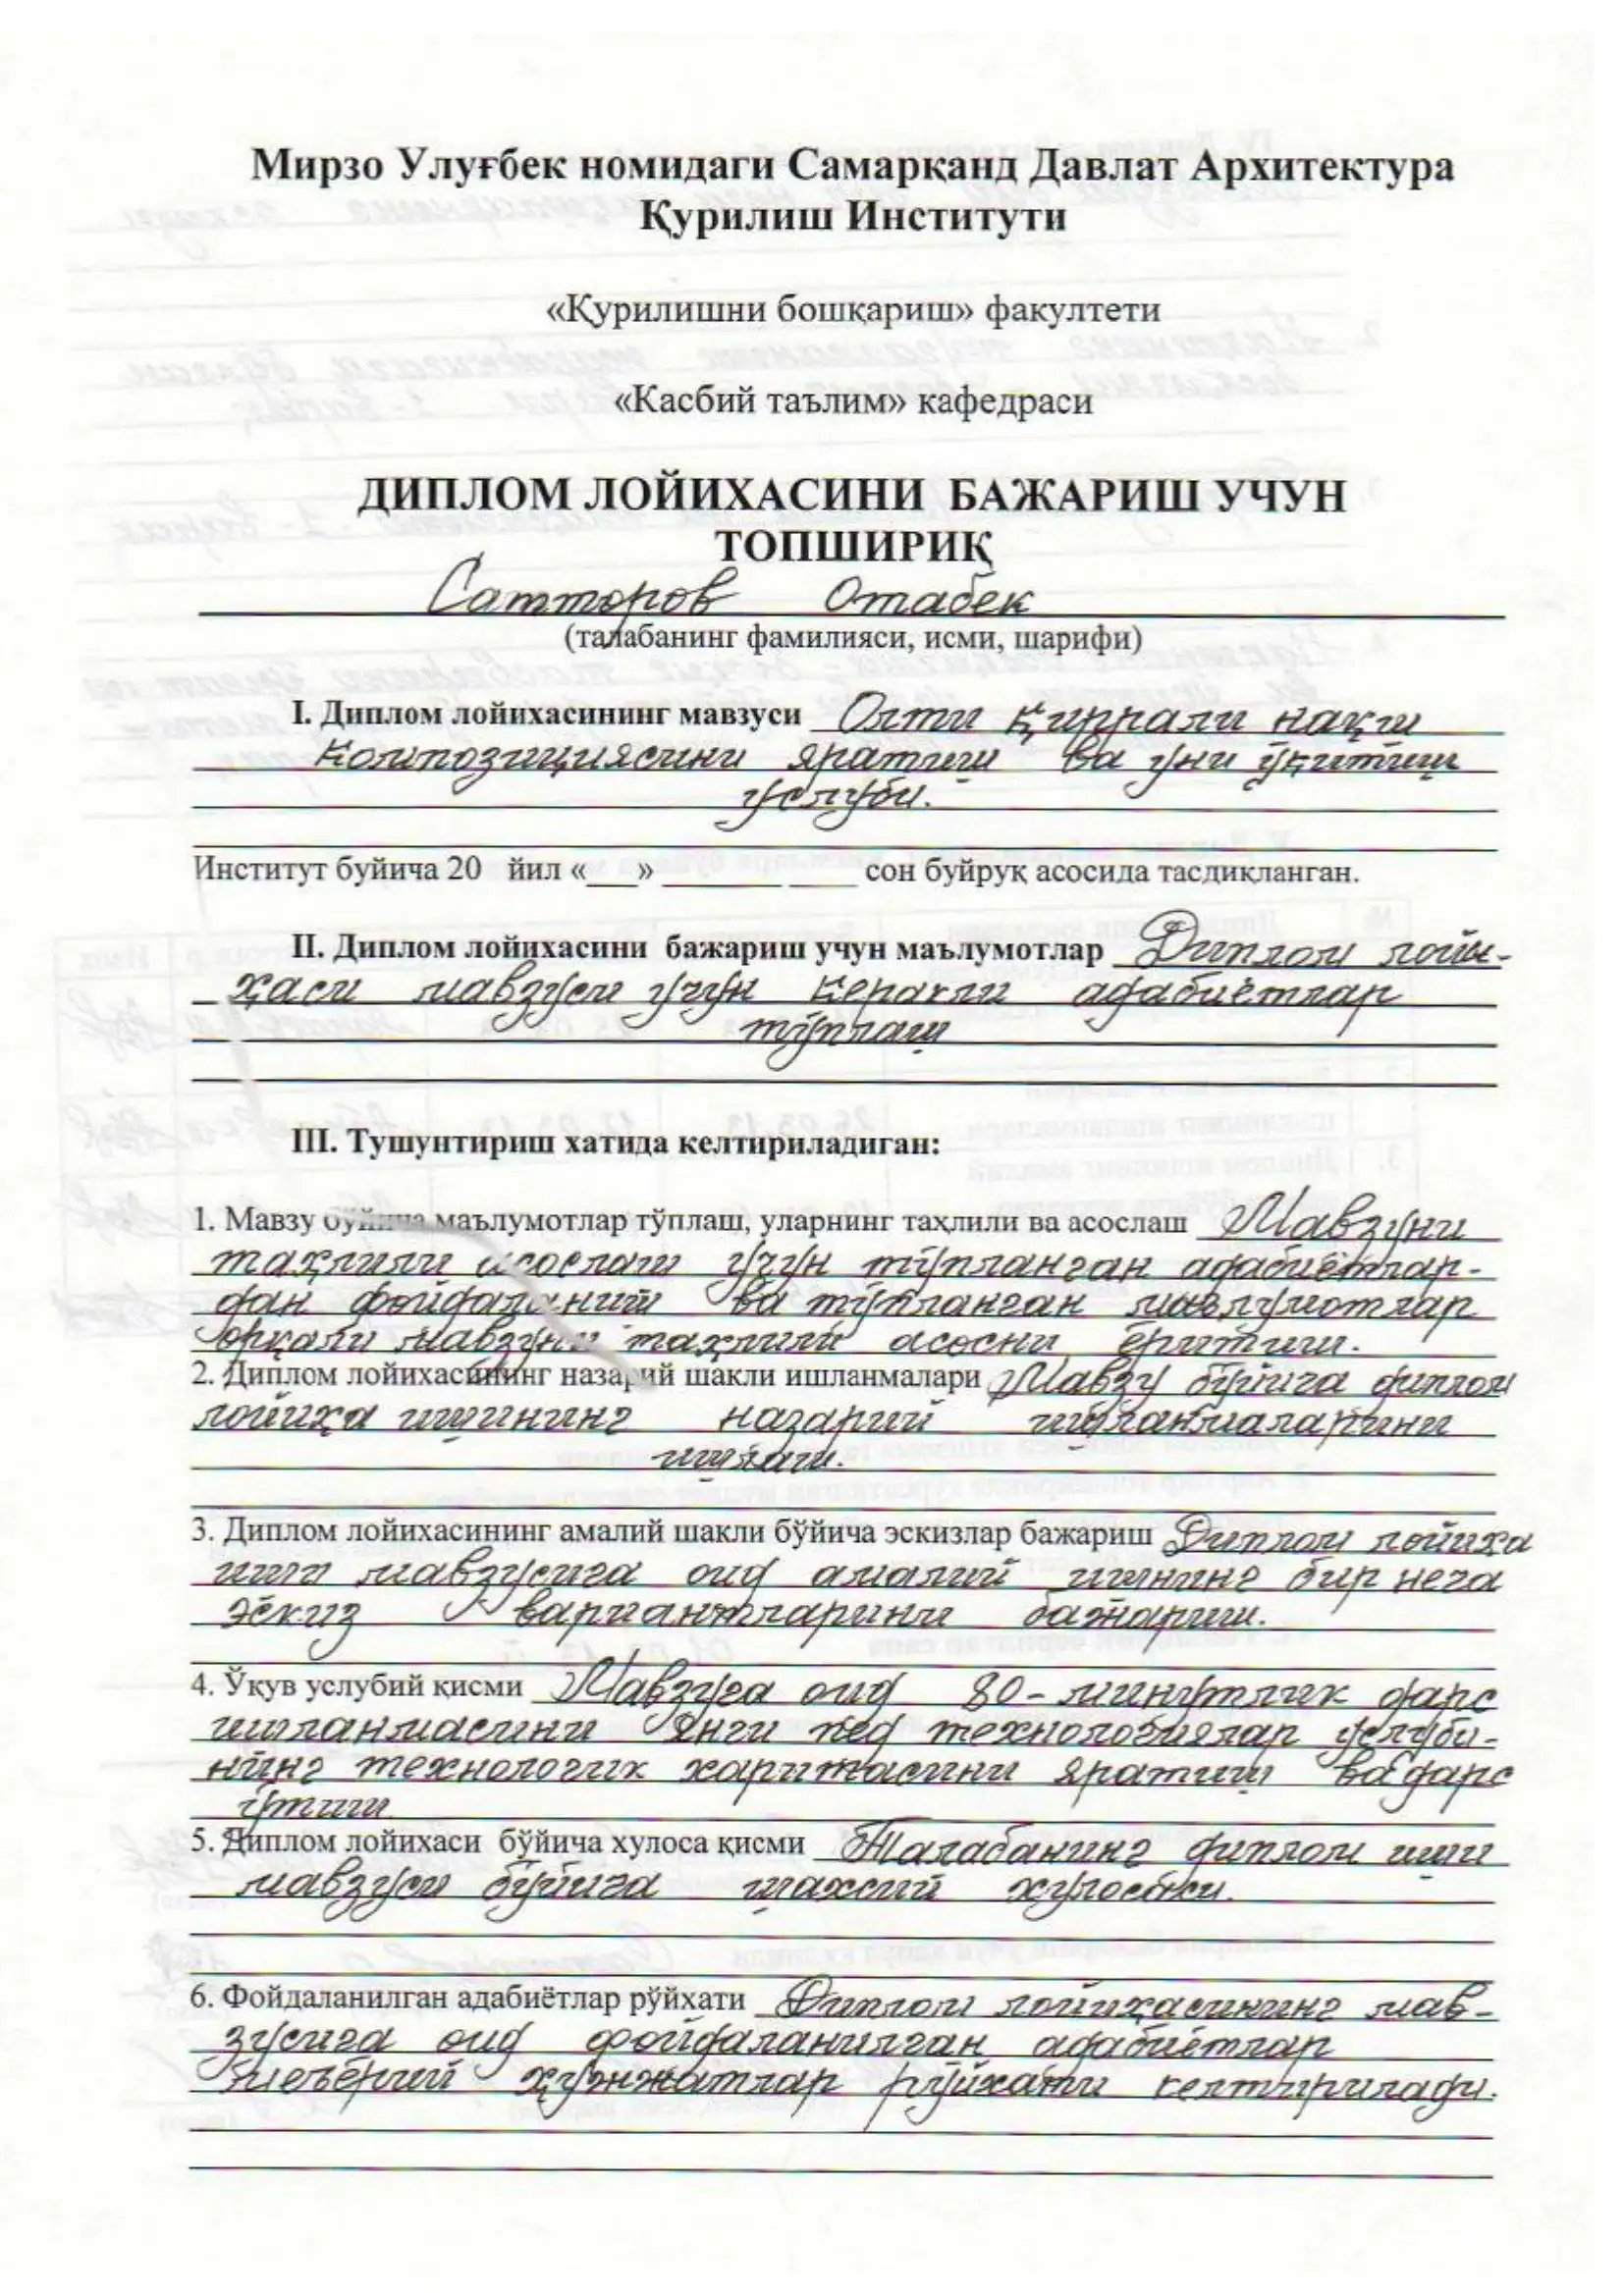 Мирзо Улуғбек номидаги Самарқанд Давлат Архитектура
Қурилиш Институти
«Қурилишни бошқариш» факултети
«Касбий таълим» кафедраси
ДИПЛОМ ЛОЙИХАСИНИ БАЖАРИШ УЧУН
ТОПШИРИҚ
Сатторов Отабек
(талабанинг фамилияси, исми, шарифи)
I. Диплом лойихасининг мавзуси Олти қиррали нақш
композициясини яратиш ва уни ўқитиш
услуби.
Институт буйича 20 йил «___» _______ ____ сон буйруқ асосида тасдиқланган.
II. Диплом лойихасини бажариш учун маълумотлар Диплом лойи-
ҳаси мавзуси учун керакли адабиётлар
тўплаш
III. Тушунтириш хатида келтириладиган:
1. Мавзу бўйича маълумотлар тўплаш, уларнинг таҳлили ва асослаш Мавзуни
таҳлили асослаш учун тўпланган адабиётлар-
дан фойдаланиш ва тўпланган маълумотлар
орқали мавзуни таҳлили асосни ёритиш.
2. Диплом лойихасининг назарий шакли ишланмалари Мавзу бўйича диплом
лойиҳа ишининг назарий ишланмаларини
ишлаш.
3. Диплом лойихасининг амалий шакли бўйича эскизлар бажариш Диплом лойиха
иши мавзусига оид амалий ишнинг бир неча
эскиз вариантларини бажариш.
4. Ўқув услубий қисми Мавзуга оид 80-минутлик дарс
ишланмасини янги пед технологиялар услуби-
нинг технологик харитасини яратиш ва дарс
ўтиш
5. Диплом лойихаси бўйича хулоса қисми Талабанинг диплом иши
мавзуси бўйича шахсий хулосаси.
6. Фойдаланилган адабиётлар рўйхати Диплом лойиҳасининг мав-
зусига оид фойдаланилган адабиётлар
меъёрий ҳужжатлар рўйхати келтирилади.